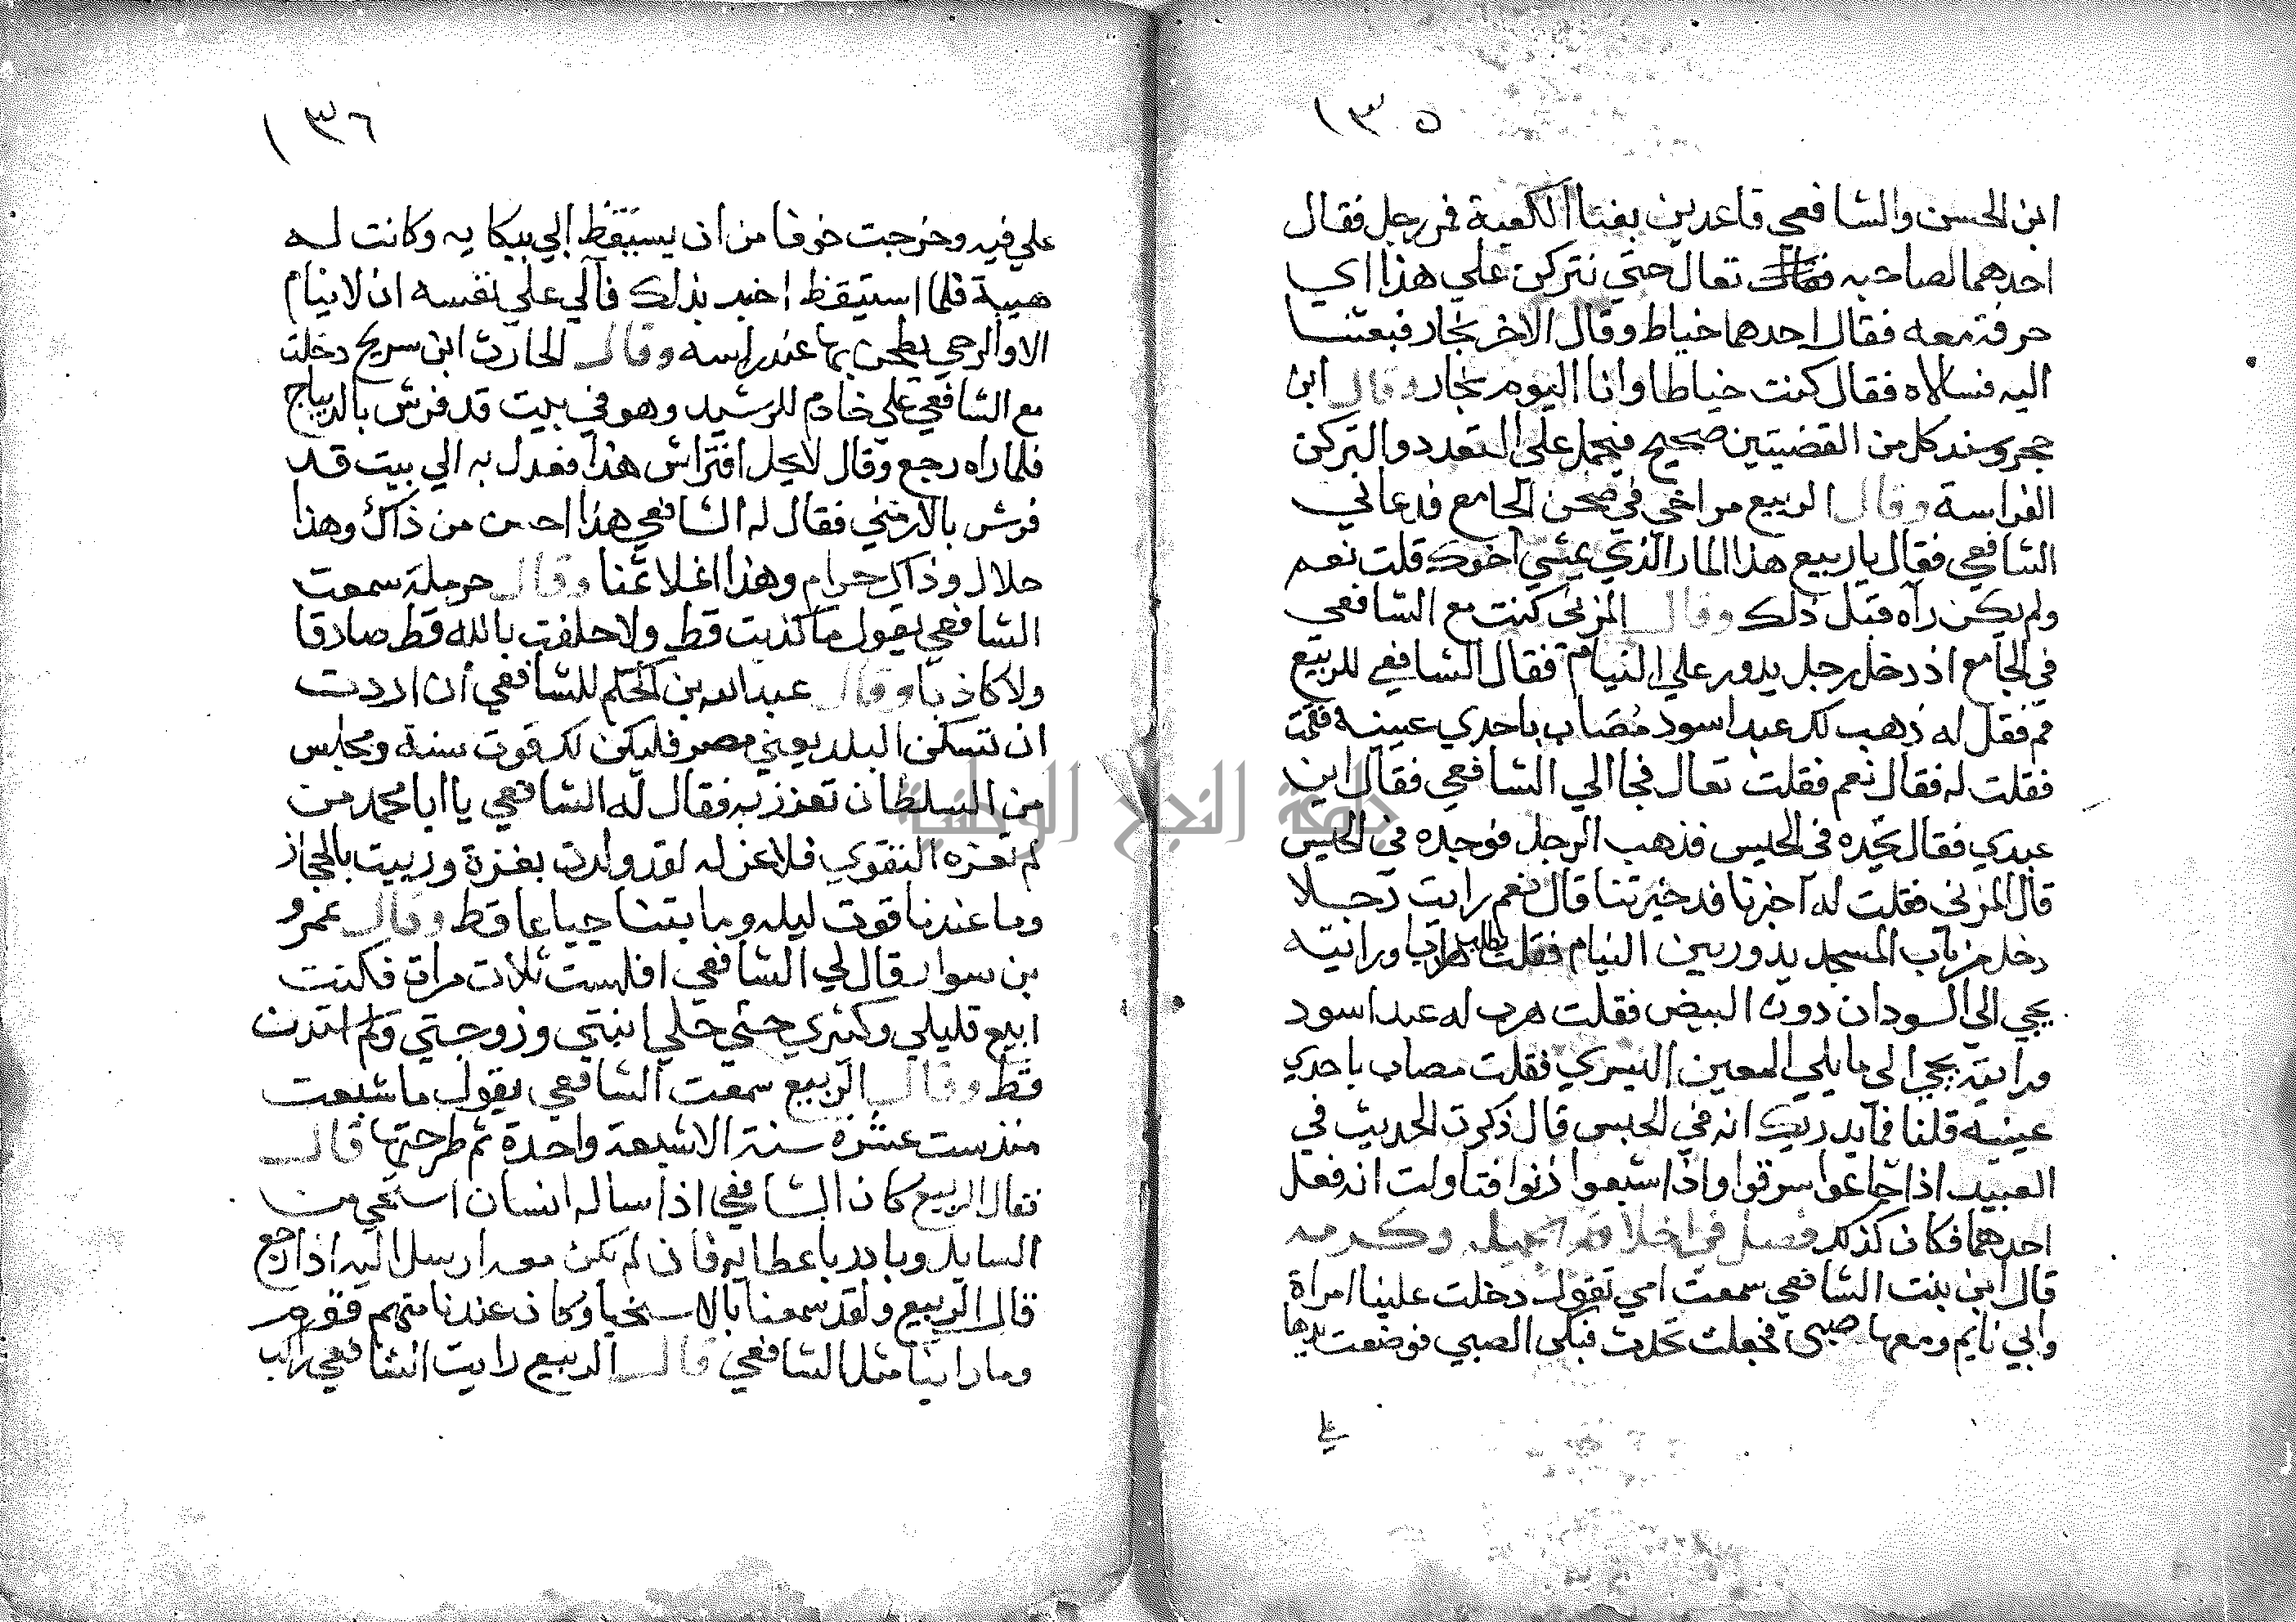 ١٣٥
ابن الحسن والشافعي قاعدين بفنا الكعبة فمر رجل فقال
احدهما لصاحبه تعال حتي نتركن علي هذا اي
حرفة معه فقال احدهما خياط وقال الاخر نجار فبعثنا
اليه فسالاه فقال كنت خياطا وانا اليوم نجار وقال ابن
حجر وسند كل من القضيتين صحيح فيحمل علي التعدد والتركن
الفراسة وقال الربيع مر اخي في صحن الجامع فدعاني
الشافعي فقال يا ربيع هذا المار الذي يمشي اخوك قلت نعم
ولم يكن رآه قبل ذلك وقال المزني كنت مع الشافعي
في الجامع اذ دخل رجل يدور علي النيام فقال الشافعي للربيع
قم فقل له ذهب لك عبد اسود مُصَاب باحدي عينيه فقمت
فقلت له فقال نعم فقلت تعال فجا الي الشافعي فقال اين
عبدي فقال تجده في الحبس فذهب الرجل فوجده في الحبس
قال المزني فقلت له اخبرنا فقد حيرتنا قال نعم رايت رجلا
دخل من باب المسجد يدور بين النيام فقلت يطلب هاربا ورايته
يجي الي السودان دون البيض فقلت هرب له عبد اسود
ورايته يجي الي ما يلي العين اليسري فقلت مصاب باحدي
عينيه قلنا فما يدريك انه في الحبس قال ذكرت الحديث في
العبيد اذا جاعوا سرقوا واذا شبعوا زنوا فتاولت انه فعل
احدهما فكان كذلك فصل في اخلاقه الجميله وكرمه
قال ابن بنت الشافعي سمعت امي تقول دخلت علينا امراة
وابي نايم ومعها صبي فجعلت تحدث فبكي الصبي فوضعت يدها
علي
١٣٦
علي فيه وخرجت خوفا من ان يستيقظ ابي ببكايه وكانت له
هيبة فلما استيقظ اخبر بذلك فآلي علي نفسه ان لا ينام
الا والرحي يطحن بها عند راسه وقال الحارث ابن سريج دخلت
مع الشافعي علي خادم للرشيد وهو في بيت قد فرش بالديباج
فلما راه رجع وقال لا يحل افتراش هذا فعدل به الي بيت قد
فرش بالارمني فقال له الشافعي هذا احسن من ذاك وهذا
حلال وذاك حرام وهذا اغلا ثمنا وقال حرملة سمعت
الشافعي يقول ما كذبت قط ولا حلفت بالله قط صادقا
ولا كاذبا وقال عبدالله بن الحكم للشافعي أن اردت
ان تسكن البلد يعني مصر فليكن لك قوت سنة ومجلس
من السلطان تعزز به فقال له الشافعي يا ابا محمد من
لم تعزه التقوي فلا عز له لقد ولدت بغزة وربيت بالحجاز
وما عندنا قوت ليله وما بتنا جياعا قط وقال عمرو
بن سوار قال لي الشافعي افلست ثلاث مرات فكنت
ابيع قليلي وكثيري حتي حلي ابنتي وزوجتي ولم استدن
قط وقال الربيع سمعت الشافعي يقول ما شبعت
منذ ست عشره سنة الا شبعة واحدة ثم طرحتها قال
فقال الربيع كان الشافعي اذا ساله انسان استحي من
السايل وبادر باعطايه فان لم يكن معه ارسل اليه اذا رجع
قال الربيع ولقد سمعنا بالاسخيا وكان عندنا منهم قوم
وما راينا مثل الشافعي قال الربيع رايت الشافعي راكب
جامعة النجاح الوطنية